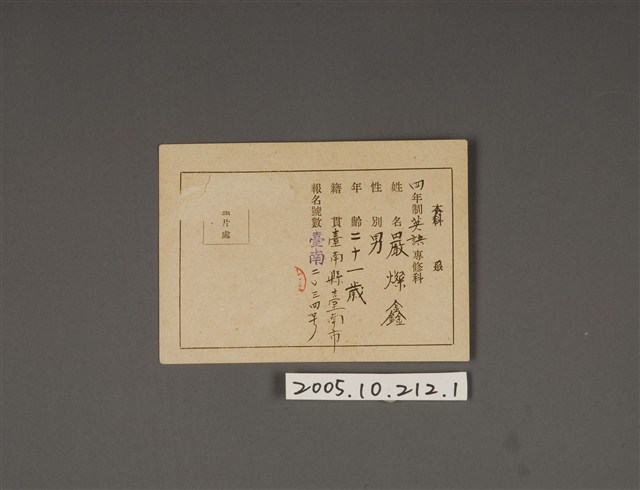 本科
四年制英語專修科
姓名嚴燦鑫
性別男
年齡二十一歲
籍貫臺南縣臺南市
報名號數臺南二〇三四号
片處
2005.10.212.1